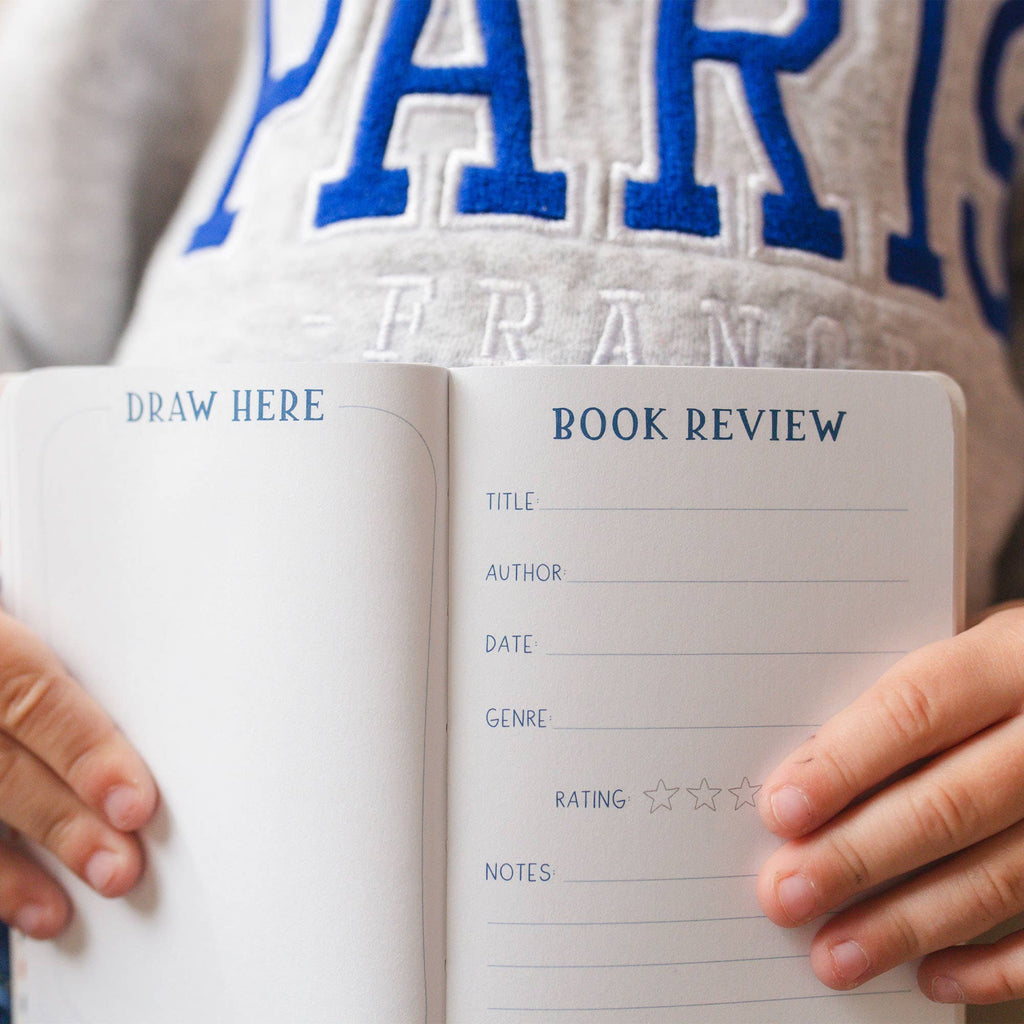 PARIS
DRAW HERE
BOOK REVIEW
TITLE:
AUTHOR:
DATE:
GENRE:
RATING:
NOTES: